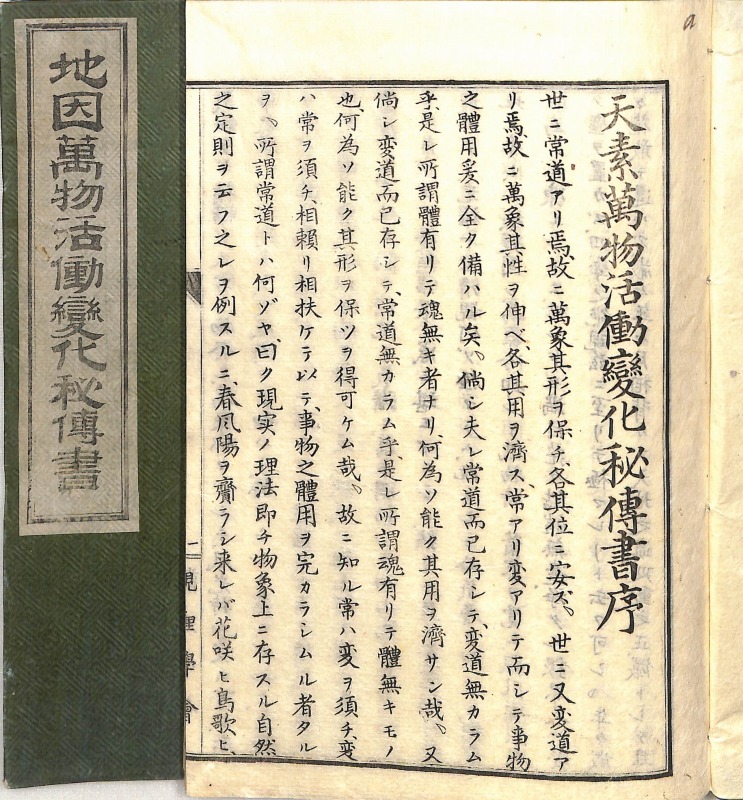 地因萬物活働變化秘傳書
天素萬物活働變化秘傳書序
世ニ常道アリ焉、故ニ萬象其形ヲ保チ、各其位ニ安ズ。世ニ又変道ア
リ焉故ニ萬象其性ヲ伸ベ、各其用ヲ済ス、常アリ変アリテ而シテ事物
之體用爰ニ全ク備ハル矣。倘シ夫レ常道而已存シテ、変道無カラム
乎、是レ所謂體有リテ魂無キ者ナリ、何為ソ能ク其用ヲ済サン哉。又
倘シ変道而已存シテ、常道無カラム乎、是レ所謂魂有リテ體無キモノ
也、何為ソ能ク其形ヲ保ツヲ得可ケム哉。故ニ知ル常ハ変ヲ須チ、変
ハ常ヲ須チ、相賴リ相扶ケテ以テ、事物之體用ヲ完カラシムル者タル
ヲ。所謂常道トハ何ゾヤ、曰ク現実ノ理法即チ物象上ニ存スル自然
之定則ヲ云フ之レヲ例スルニ、春風陽ヲ齎ラシ来レバ花咲ヒ鳥歌ヒ、
一
理學會
a